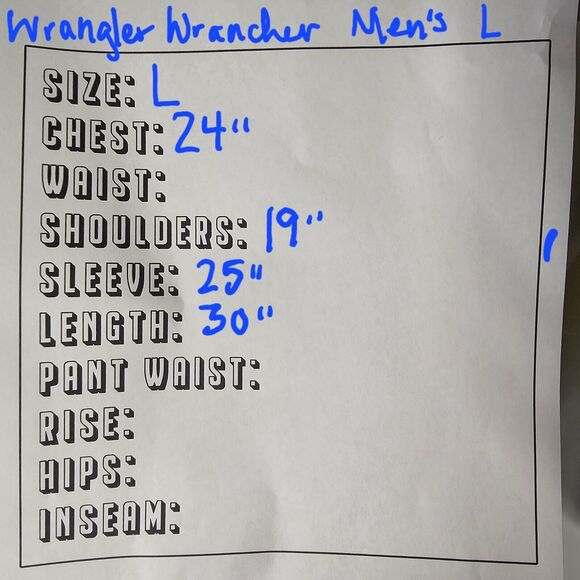 Wrangler Wrancher Men's L
SIZE: L
CHEST: 24"
WAIST:
SHOULDERS: 19"
SLEEVE: 25"
LENGTH: 30"
PANT WAIST:
RISE:
HIPS:
INSEAM: